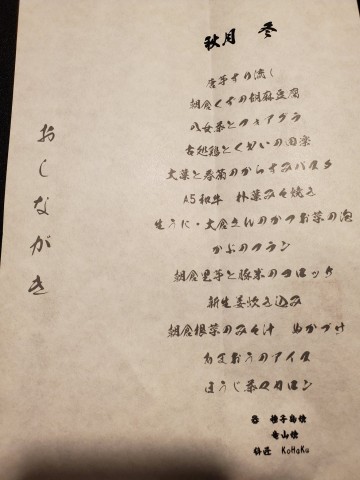 秋月 冬
おしながき
唐芋すり流し
朝倉くずの胡麻豆腐
八女茶とフォアグラ
古処鶏とくわいの田楽
文葉と春菊のからすみパスタ
A5和牛 朴葉みそ焼き
生うに・大倉さんのかつお菜の泡
かぶのフラン
朝倉里芋と豚米のコロッケ
新生姜炊き込み
朝倉根菜のみそ汁 ぬかづけ
あまおうのアイス
ほうじ茶マカロン
器 種子島焼
竜山焼
KoHaKu